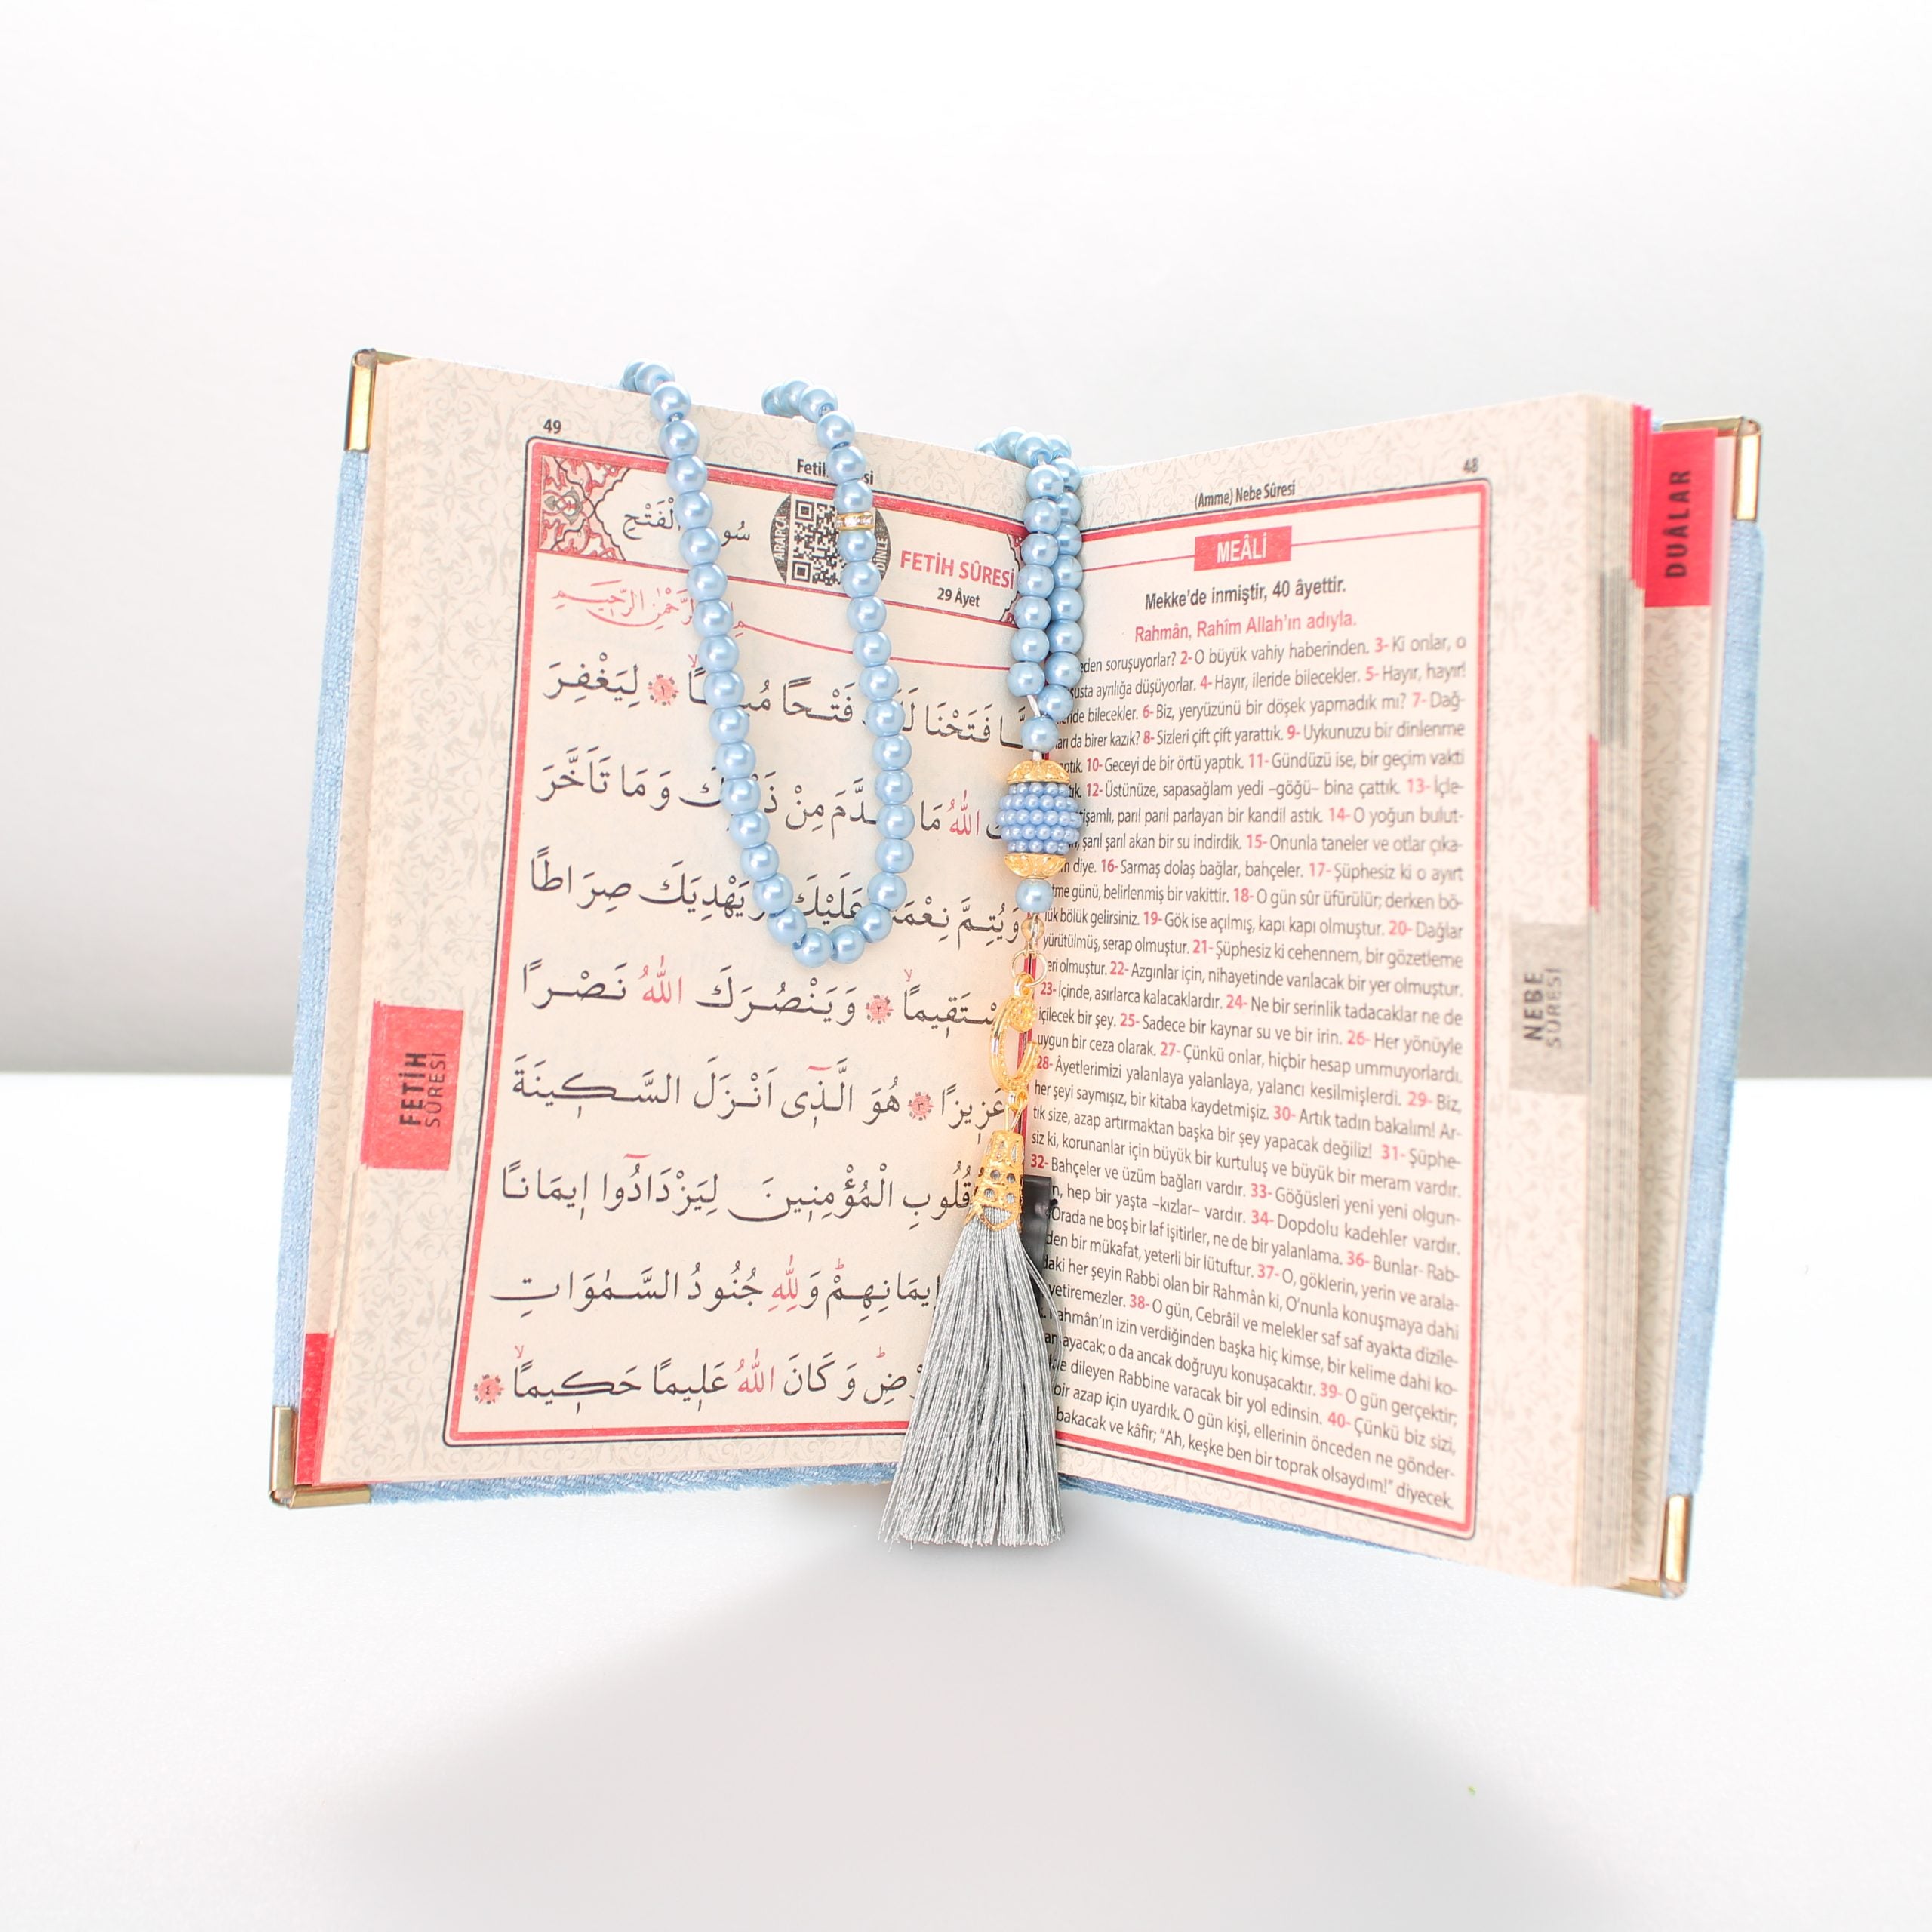 49
Fetih
سُو
الْفَتْحِ
ARAPÇA
DİNLE
FETİH SÛRESİ
29 Âyet
الرَّحْمٰنِ الرَّحِيمِ
فَتَحْنَا فَتْحًا لِيَغْفِرَ
اللّٰهُ مَا مِنْ وَمَا تَاَخَّرَ
وَيُتِمَّ عَلَيْكَ وَيَهْدِيَكَ صِرَاطًا
وَيَنْصُرَكَ اللّٰهُ نَصْرًا
عَزِيزًا ﴿٣﴾ هُوَ الَّذٖٓى اَنْزَلَ السَّكٖينَةَ
قُلُوبِ الْمُؤْمِنٖينَ لِيَزْدَادُٓوا اٖيمَانًا
اٖيمَانِهِمْؕ وَلِلّٰهِ جُنُودُ السَّمٰوَاتِ
وَكَانَ اللّٰهُ عَلٖيمًا حَكٖيمًاۙ ﴿٤﴾
FETİH
SÛRESİ
48
(Amme) Nebe Sûresi
MEÂLİ
Mekke’de inmiştir, 40 âyettir.
Rahmân, Rahîm Allah’ın adıyla.
soruşuyorlar? 2- O büyük vahiy haberinden. 3- Ki onlar, o
ayrılığa düşüyorlar. 4- Hayır, ileride bilecekler. 5- Hayır, hayır!
bilecekler. 6- Biz, yeryüzünü bir döşek yapmadık mı? 7- Dağ-
da birer kazık? 8- Sizleri çift çift yarattık. 9- Uykunuzu bir dinlenme
10- Geceyi de bir örtü yaptık. 11- Gündüzü ise, bir geçim vakti
12- Üstünüze, sapasağlam yedi –göğü– bina çattık. 13- İçle-
parıl parıl parlayan bir kandil astık. 14- O yoğun bulut-
şarıl şarıl akan bir su indirdik. 15- Onunla taneler ve otlar çıka-
diye. 16- Sarmaş dolaş bağlar, bahçeler. 17- Şüphesiz ki o ayırt
günü, belirlenmiş bir vakittir. 18- O gün sûr üfürülür; derken bö-
lük bölük gelirsiniz. 19- Gök ise açılmış, kapı kapı olmuştur. 20- Dağlar
yürütülmüş, serap olmuştur. 21- Şüphesiz ki cehennem, bir gözetleme
yeri olmuştur. 22- Azgınlar için, nihayetinde varılacak bir yer olmuştur.
23- İçinde, asırlarca kalacaklardır. 24- Ne bir serinlik tadacaklar ne de
içilecek bir şey. 25- Sadece bir kaynar su ve bir irin. 26- Her yönüyle
uygun bir ceza olarak. 27- Çünkü onlar, hiçbir hesap ummuyorlardı.
28- Âyetlerimizi yalanlaya yalanlaya, yalancı kesilmişlerdi. 29- Biz,
her şeyi saymışız, bir kitaba kaydetmişiz. 30- Artık tadın bakalım! Ar-
tık size, azap artırmaktan başka bir şey yapacak değiliz! 31- Şüphe-
siz ki, korunanlar için büyük bir kurtuluş ve büyük bir meram vardır.
32- Bahçeler ve üzüm bağları vardır. 33- Göğüsleri yeni yeni olgun-
hep bir yaşta –kızlar– vardır. 34- Dopdolu kadehler vardır.
Orada ne boş bir laf işitirler, ne de bir yalanlama. 36- Bunlar- Rab-
den bir mükafat, yeterli bir lütuftur. 37- O, göklerin, yerin ve arala-
daki her şeyin Rabbi olan bir Rahmân ki, O’nunla konuşmaya dahi
yetiremezler. 38- O gün, Cebrâil ve melekler saf saf ayakta dizile-
Rahmân’ın izin verdiğinden başka hiç kimse, bir kelime dahi ko-
o da ancak doğruyu konuşacaktır. 39- O gün gerçektir;
dileyen Rabbine varacak bir yol edinsin. 40- Çünkü biz sizi,
bir azap için uyardık. O gün kişi, ellerinin önceden ne gönder-
bakacak ve kâfir; “Ah, keşke ben bir toprak olsaydım!” diyecek.
NEBE
SÛRESİ
DUÂLAR